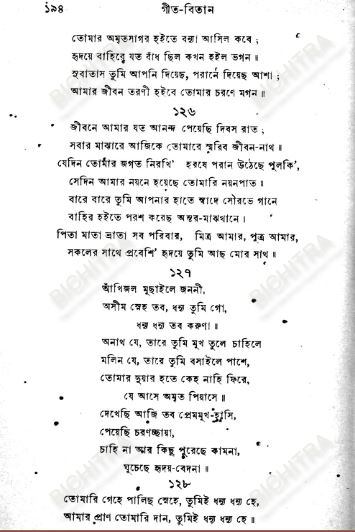 ১৯৪ গীত-বিতান
তোমার অমৃতসাগর হইতে বন্যা আসিল কবে ;
হৃদয়ে বাহিরে যত বাঁধ ছিল কখন হইল ভগন ॥
সুবাতাস তুমি আপনি দিয়েছ, পরানে দিয়েছ আশা ;
আমার জীবন তরণী হইবে তোমার চরণে মগন ॥
১২৬
জীবনে আমার যত আনন্দ পেয়েছি দিবস রাত ;
সবার মাঝারে আজিকে তোমারে স্মরিব জীবন-নাথ ॥
যেদিন তোমার জগত নিরখি' হরষে পরান উঠেছে পুলকি',
সেদিন আমার নয়নে হয়েছে তোমারি নয়নপাত ॥
বারে বারে তুমি আপনার হাতে স্বাদে সৌরভে গানে
বাহির হইতে পরশ করেছ অন্তর-মাঝখানে।
পিতা মাতা ভ্রাতা সব পরিবার, মিত্র আমার, পুত্র আমার,
সকলের সাথে প্রবেশি' হৃদয়ে তুমি আছ মোর সাথ ॥
১২৭
আঁখিজল মুছাইলে জননী,
অসীম স্নেহ তব, ধন্য তুমি গো,
ধন্য ধন্য তব করুণা ॥
অনাথ যে, তারে তুমি মুখ তুলে চাহিলে
মলিন যে, তারে তুমি বসাইলে পাশে,
তোমার দুয়ার হতে কেহ নাহি ফিরে,
যে আসে অমৃত পিয়াসে ॥
দেখেছি আজি তব প্রেমমুখ-হাসি,
পেয়েছি চরণচ্ছায়া,
চাহি না আর কিছু পুরেছে কামনা,
ঘুচেছে হৃদয়-বেদনা ॥
১২৮
তোমারি গেহে পালিছ স্নেহে, তুমিই ধন্য ধন্য হে,
আমার প্রাণ তোমারি দান, তুমিই ধন্য ধন্য হে ॥
BICHITRA